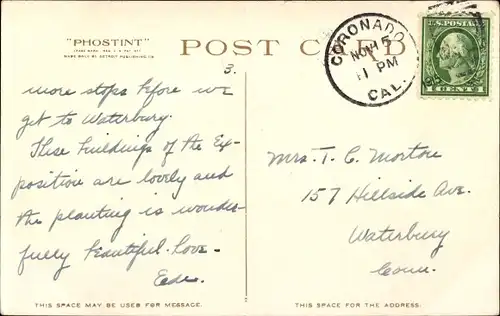 "PHOSTINT"
MADE ONLY BY DETROIT PUBLISHING CO.
POST CARD
CORONADO
NOV 5
11 PM
CAL.
U.S. POSTAGE
1 CENT 1
3.
more stops before we
get to Waterbury.
These buildings of the Ex-
position are lovely and
the planting is wonder-
fully beautiful. Love.
Mrs. T. C. Morton
157 Hillside Ave.
Waterbury
Conn.
THIS SPACE MAY BE USED FOR MESSAGE.
THIS SPACE IS FOR THE ADDRESS.